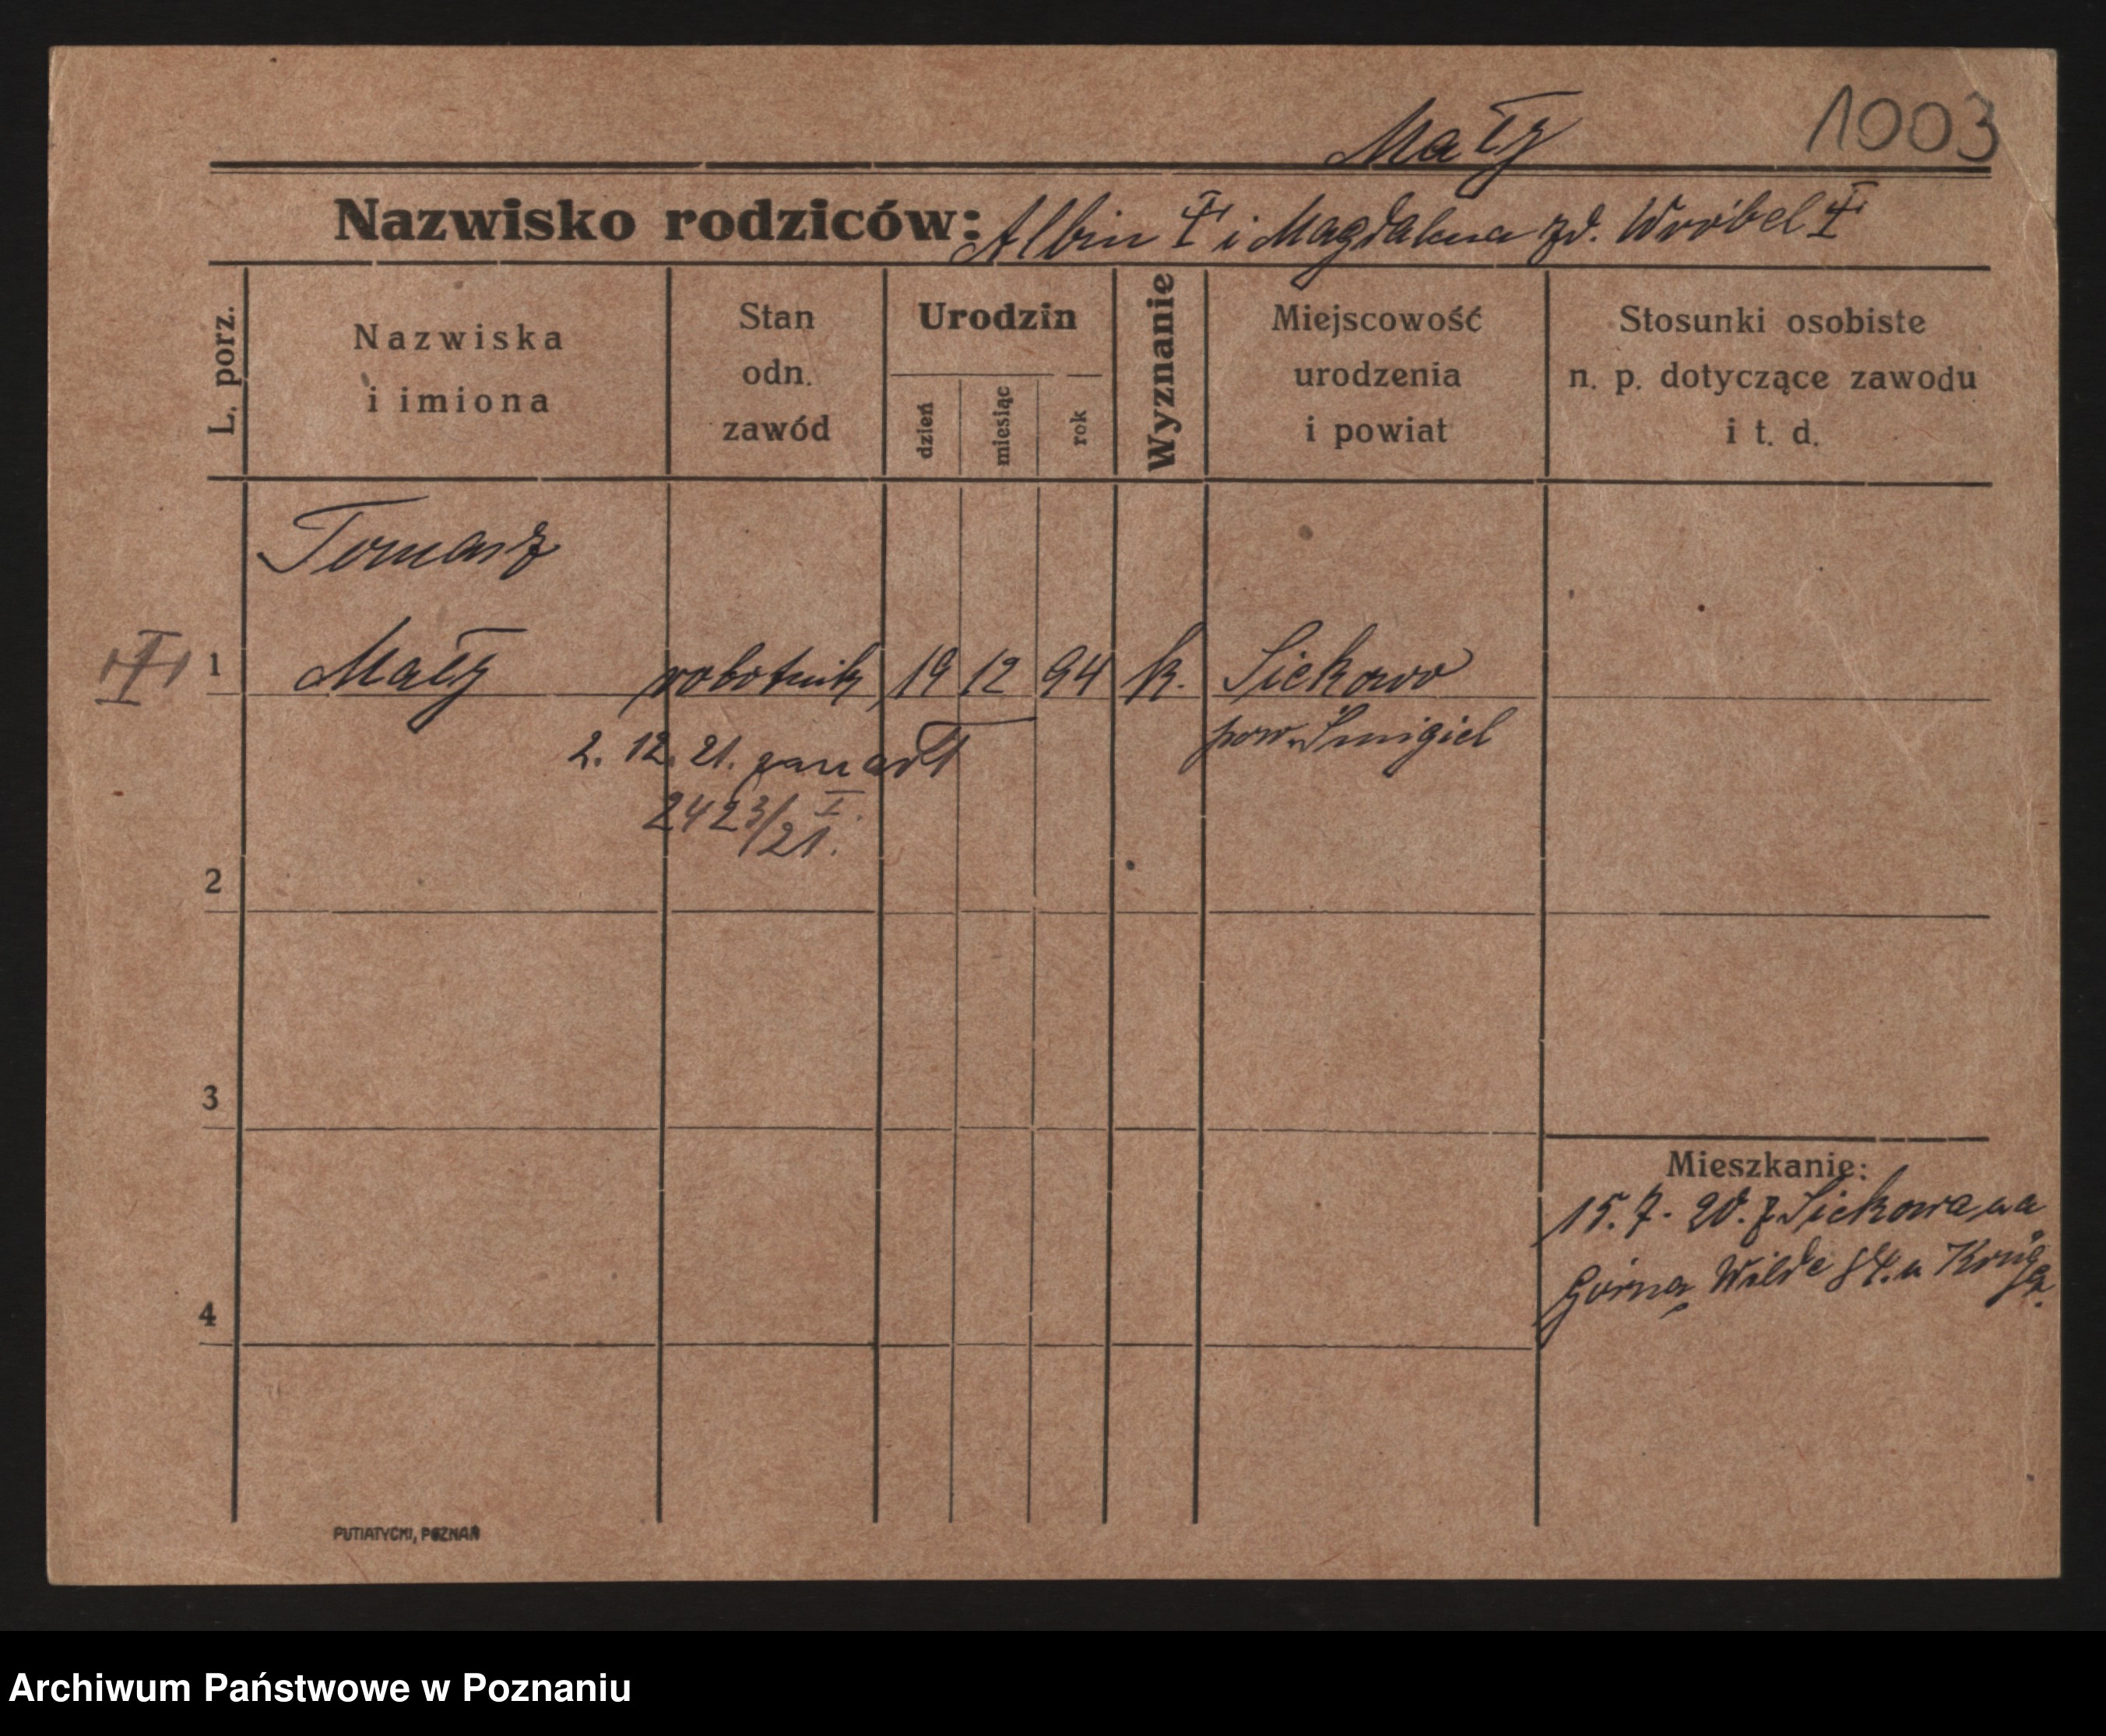 Mały
1003
Nazwisko rodziców: Albin † i Magdalena zd. Wróbel †
L. porz.
Nazwiska
i imiona
Stan
odn.
zawód
Urodzin
dzień
miesiąc
rok
Wyznanie
Miejscowość
urodzenia
i powiat
Stosunki osobiste
n. p. dotyczące zawodu
i t. d.
Tomasz
† 1 Mały robotnik 19 12 94 k. Siekowo
pow. Śmigiel
2. 12. 21. zmarł
2423/21. I.
2
3
4
Mieszkanie:
15. 7. 20. z Siekowa na
Górna Wilde 84. u
PUTIATYCKI, POZNAŃ
Archiwum Państwowe w Poznaniu